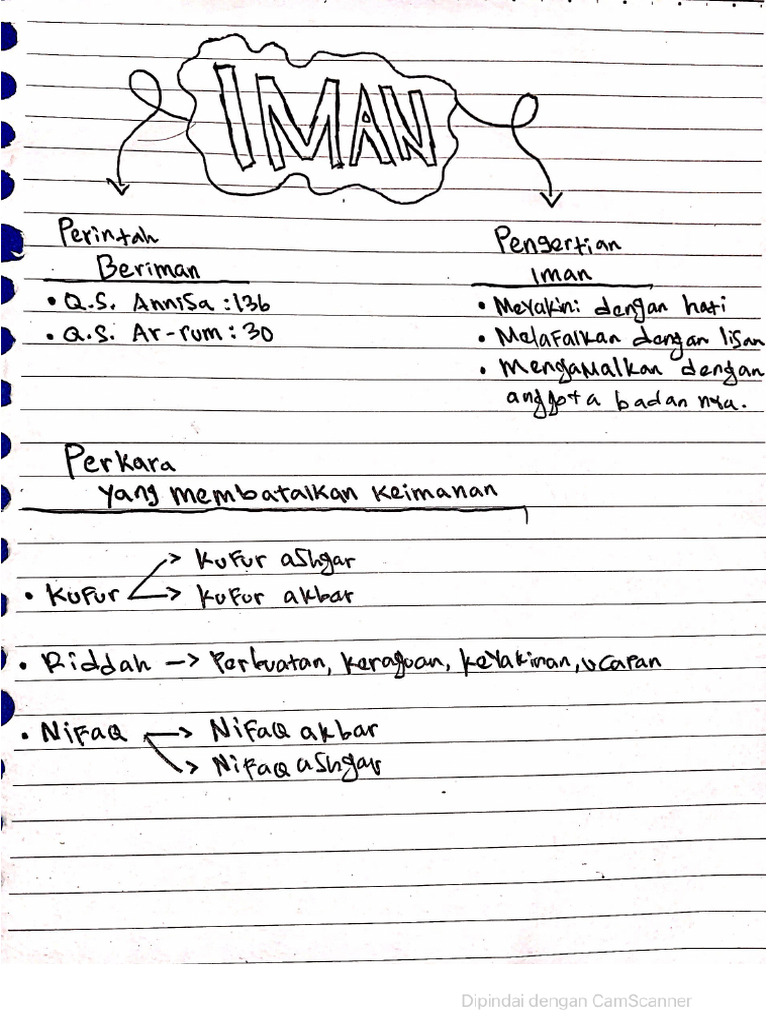 IMAN
Perintah
Beriman
• Q.S. Annisa : 136
• Q.S. Ar-rum : 30
Pengertian
Iman
• Meyakini dengan hati
• Melafalkan dengan lisan
• Mengamalkan dengan
anggota badan nya.
Perkara
yang membatalkan keimanan
• Kufur -> Kufur ashgar
-> Kufur akbar
• Riddah -> Perbuatan, keraguan, keyakinan, ucapan
• Nifaq -> Nifaq akbar
-> Nifaq ashgar
Dipindai dengan CamScanner